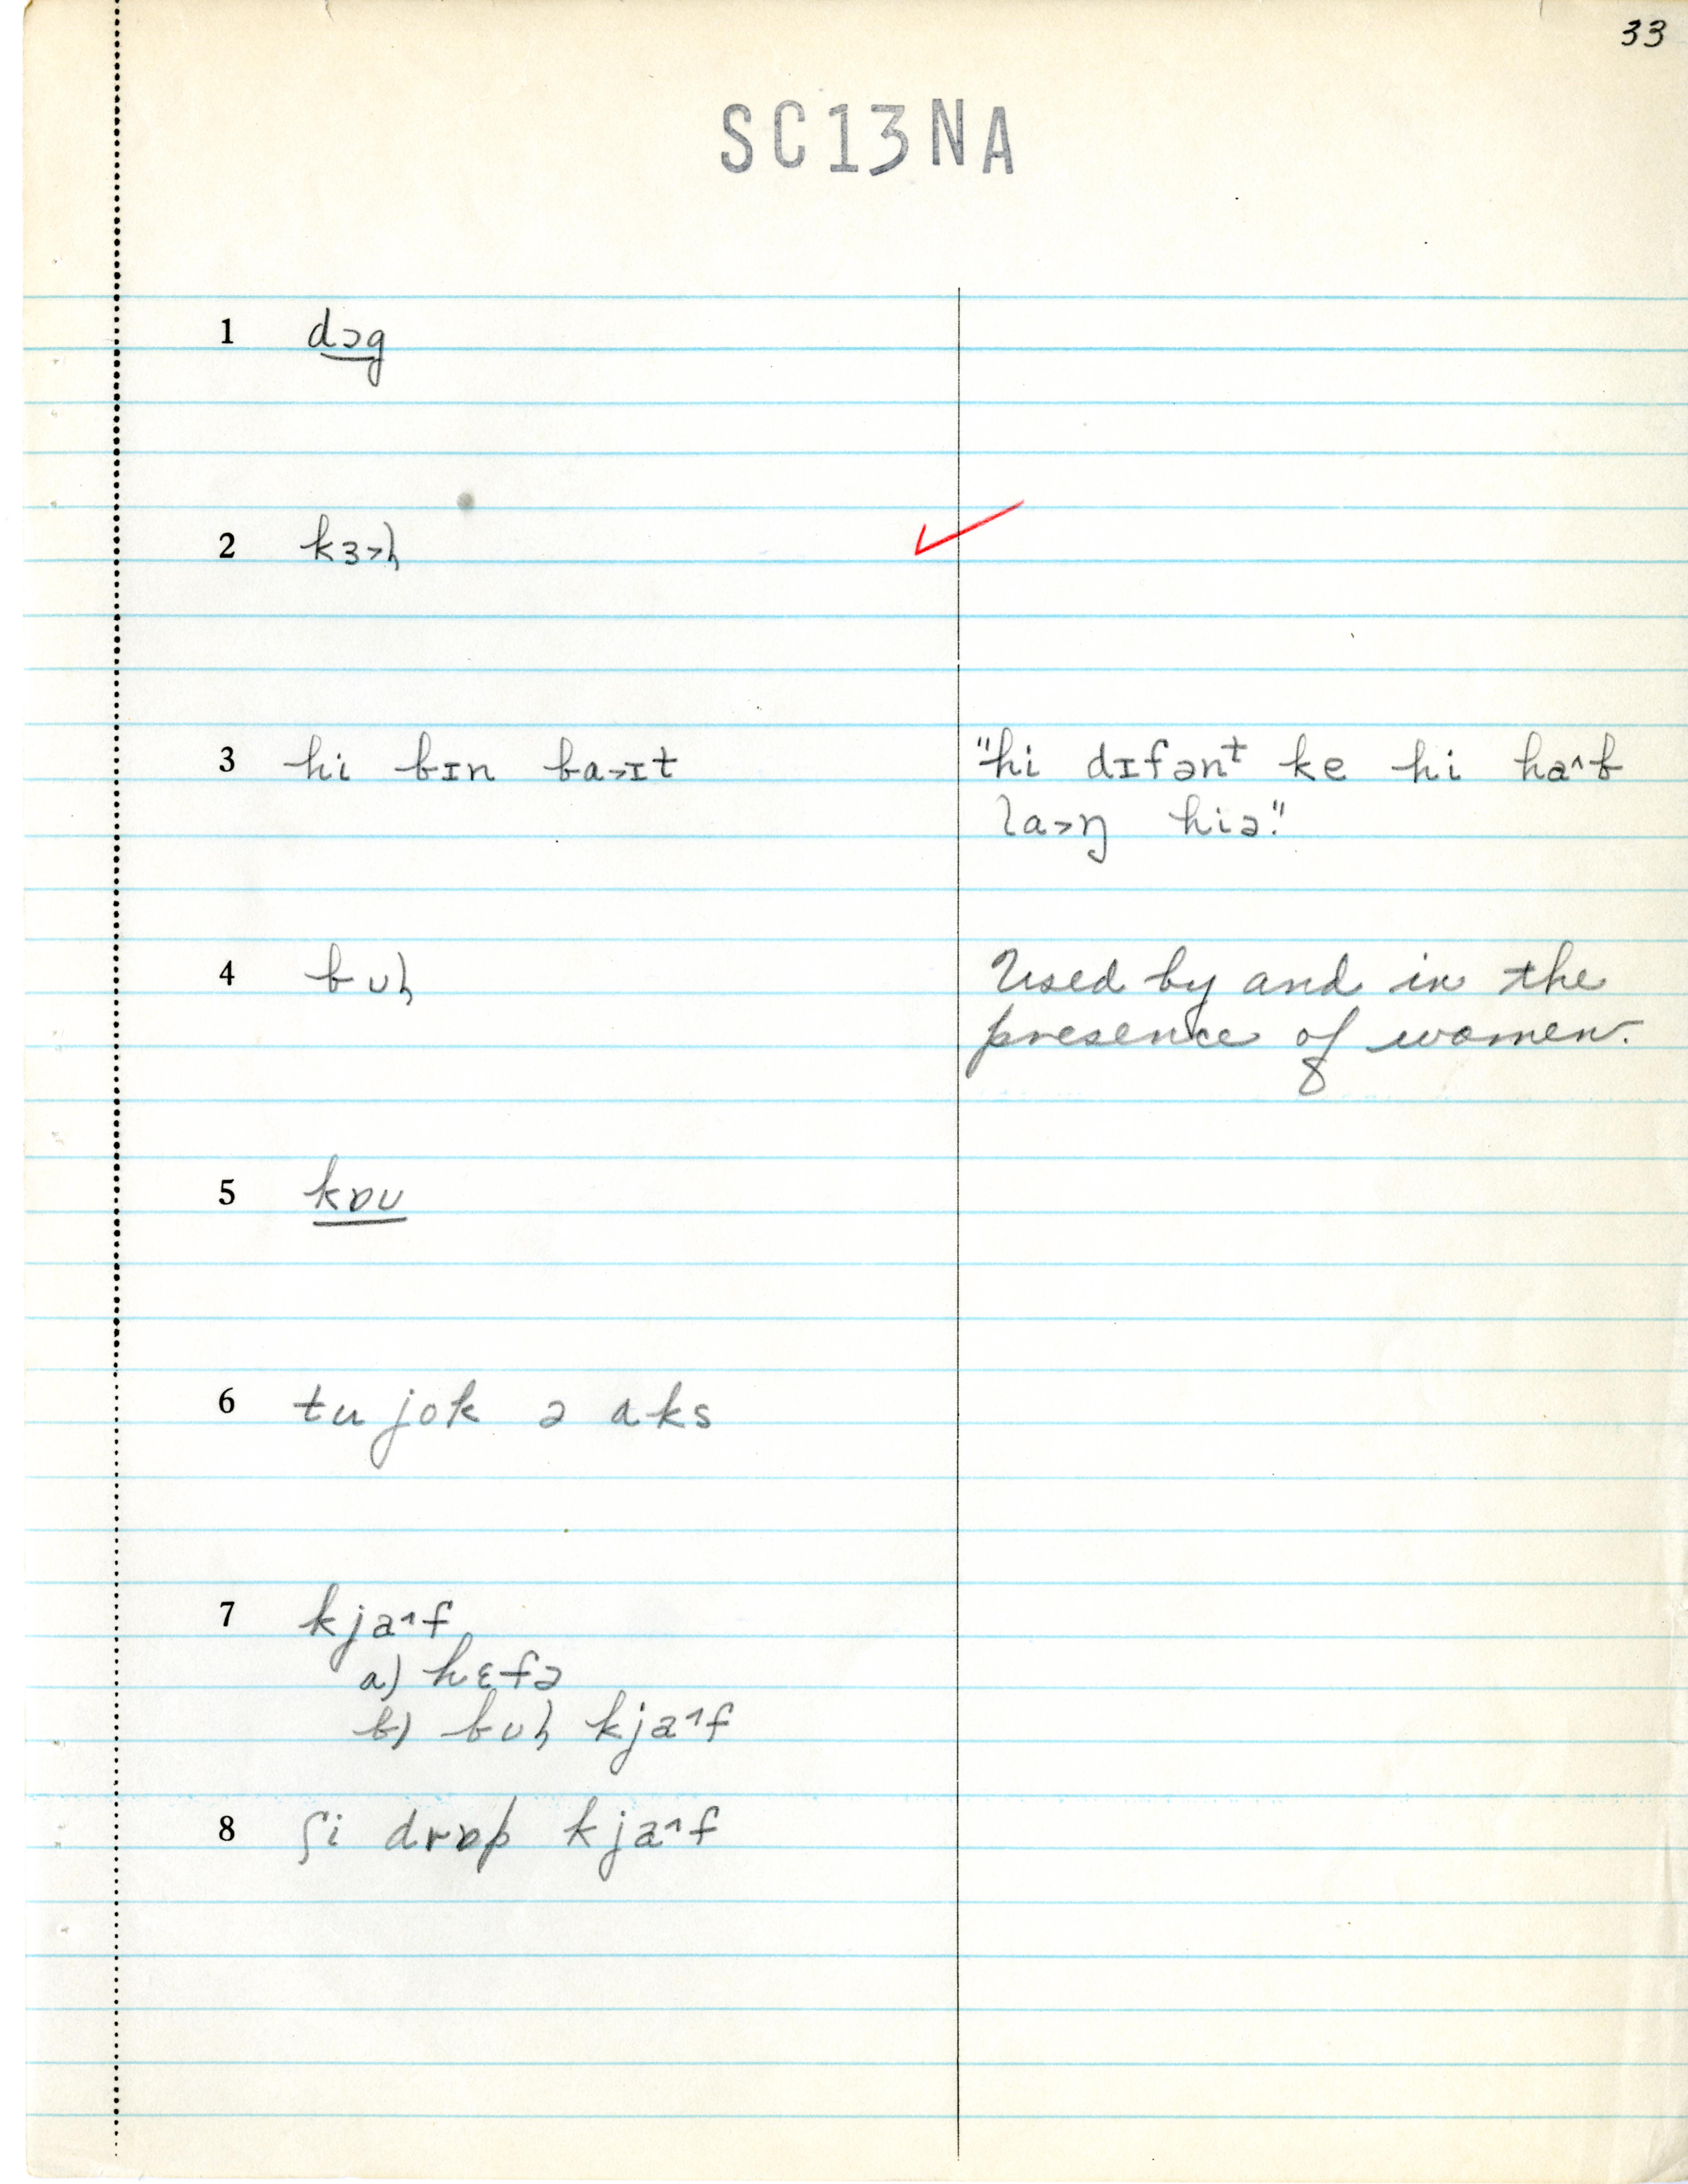 33
SC13NA
1 dɔg
2 kɜ˃ɦ
3 hi bɪn ba˃ɪt "hi dɪfənᵗ ke hi ha^b
la˃ŋ hiə."
4 bʊɦ Used by and in the
presence of women.
5 kɒʊ
6 tu jok ə aks
7 kja^f
a) hɛfə
b) bʊɦ kja^f
8 ʃi drɒp kja^f